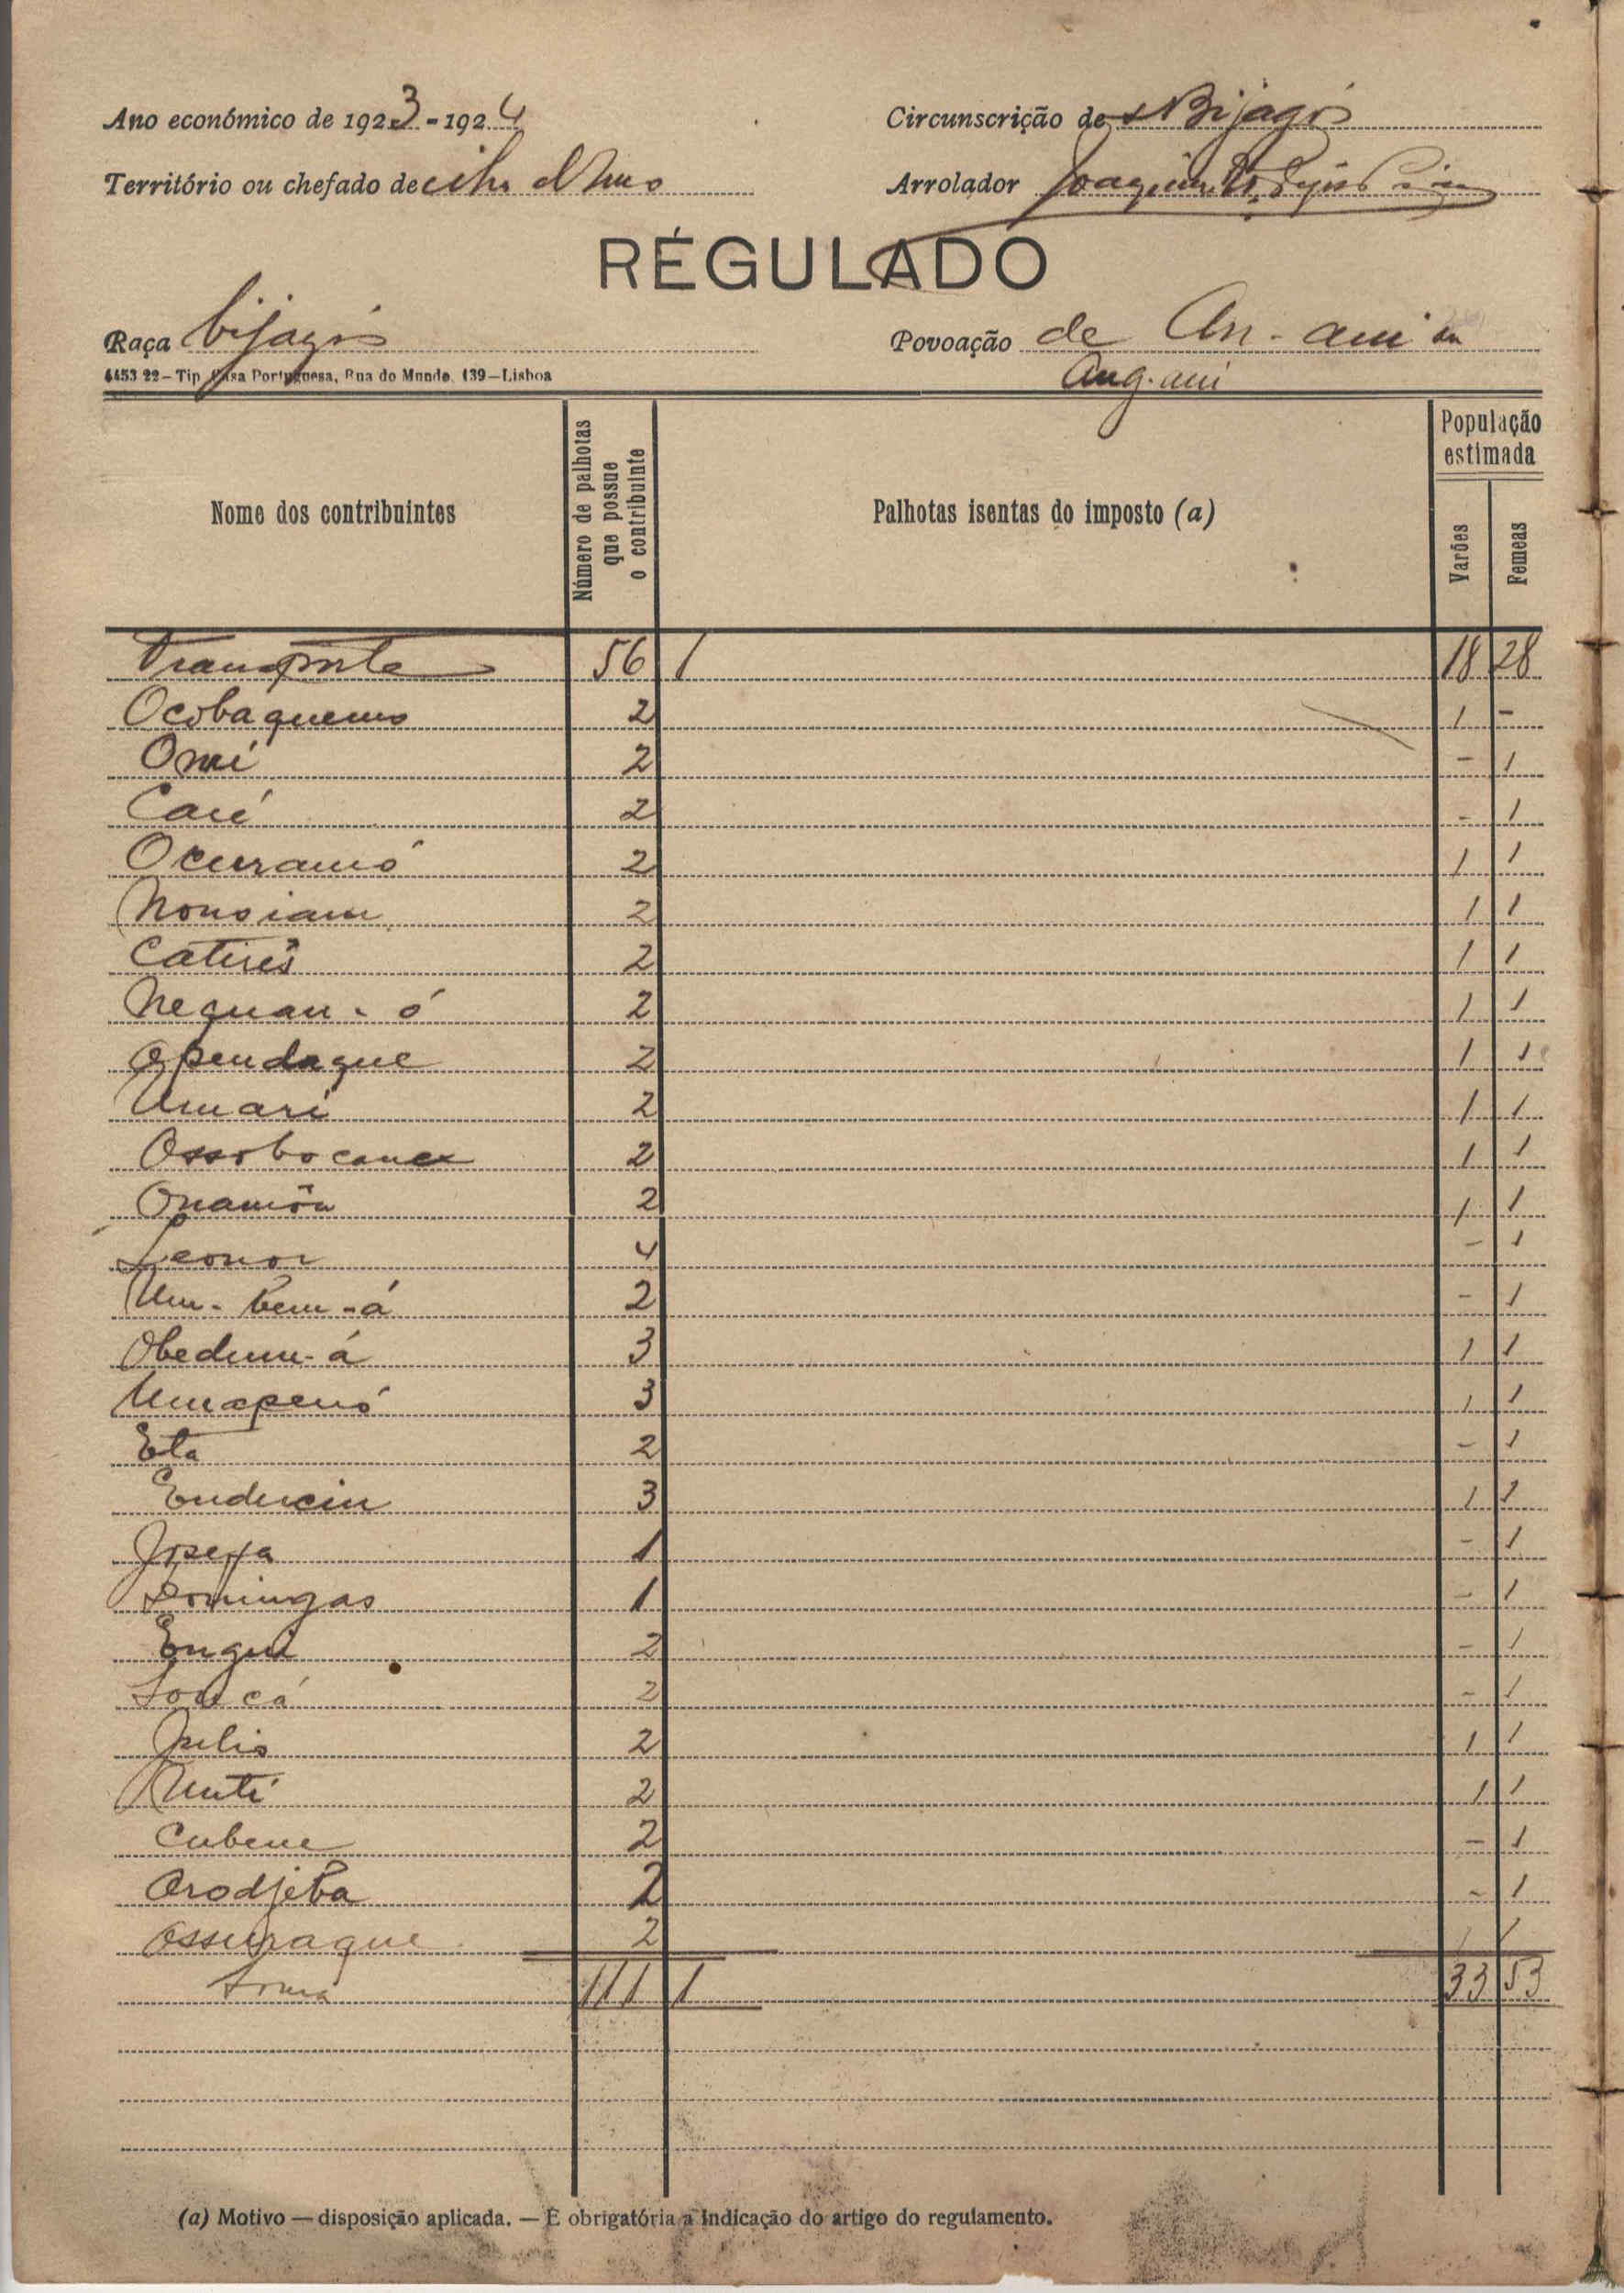 Ano económico de 1923-1924
Circunscrição de Bijagós
Território ou chefado de ilha
Arrolador Joaquim
RÉGULADO
Raça bijagós
Povoação de An-ani ou
Ang-ani
4453 22–Tip. Casa Portuguesa, Rua do Mundo, 139–Lisboa
Nome dos contribuintes
Número de palhotas que possue o contribuinte
Palhotas isentas do imposto (a)
População estimada
Varões
Femeas
Transporte 56 1 18 28
Ocobaquemo 2 1 -
Omi 2 - 1
Caié 2 - 1
Ocuramó 2 1 1
Nonoiam 2 1 1
Catirês 2 1 1
Nequan-ó 2 1 1
Opendaque 2 1 1
Umari 2 1 1
Ossobocane 2 1 1
Onamôn 2 1 1
Leonor 4 - 1
Um-bem-á 2 - 1
Obedum-á 3 1 1
Umapenó 3 1 1
Eta 2 - 1
Enducin 3 1 1
Josefa 1 - 1
Domingas 1 - 1
Engui 2 - 1
2 - 1
Julio 2 1 1
Unti 2 1 1
Cubene 2 - 1
Orodjeba 2 - 1
Ossuraque 2 1 1
Soma 111 1 33 53
(a) Motivo — disposição aplicada. — É obrigatória a indicação do artigo do regulamento.